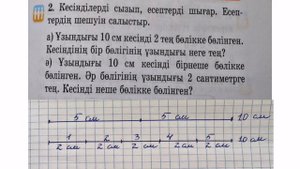 2. Кесінділерді сызып, есептерді шығар. Есеп-
тердің шешуін салыстыр.
а) Ұзындығы 10 см кесінді 2 тең бөлікке бөлінген.
Кесіндінің бір бөлігінің ұзындығы неге тең?
ә) Ұзындығы 10 см кесінді бірнеше бөлікке
бөлінген. Әр бөлігінің ұзындығы 2 сантиметрге
тең. Кесінді неше бөлікке бөлінген?
5 см 5 см 10 см
1 2 3 4 5 10 см
2 см 2 см 2 см 2 см 2 см